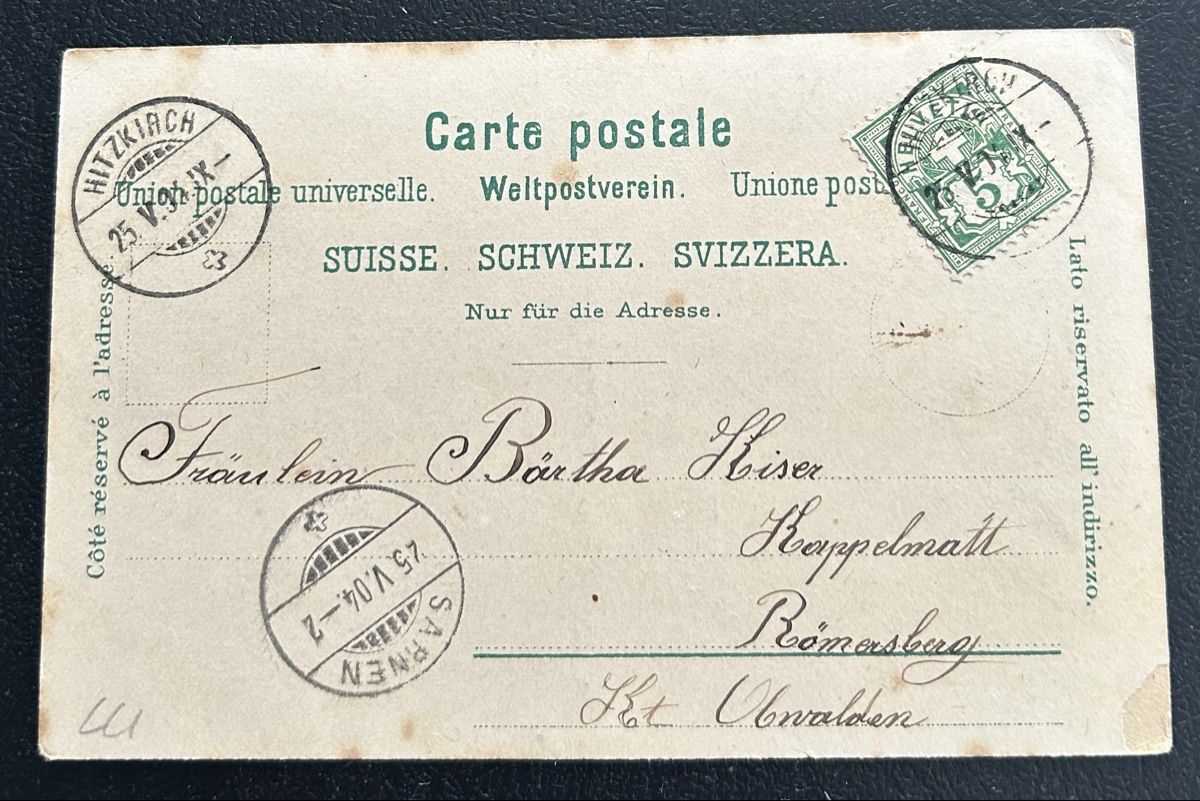 Carte postale
Union postale universelle. Weltpostverein. Unione post
SUISSE. SCHWEIZ. SVIZZERA.
Nur für die Adresse.
Côté réservé à l'adresse.
Lato riservato all' indirizzo.
HITZKIRCH
25.V.04.IX–
FRANCO
5
25.V.
IX–
Fräulein Bärtha Kiser
Kappelmatt
Römersberg
Kt Obwalden
SARNEN
25.V.04.–2